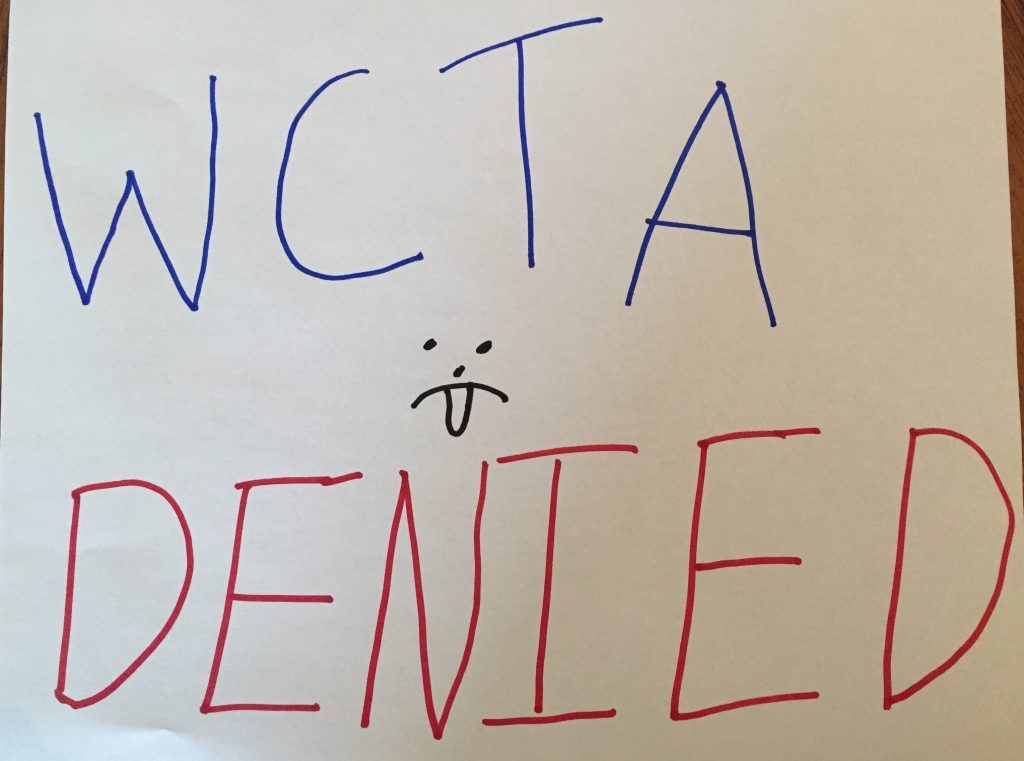 WCTA
DENIED